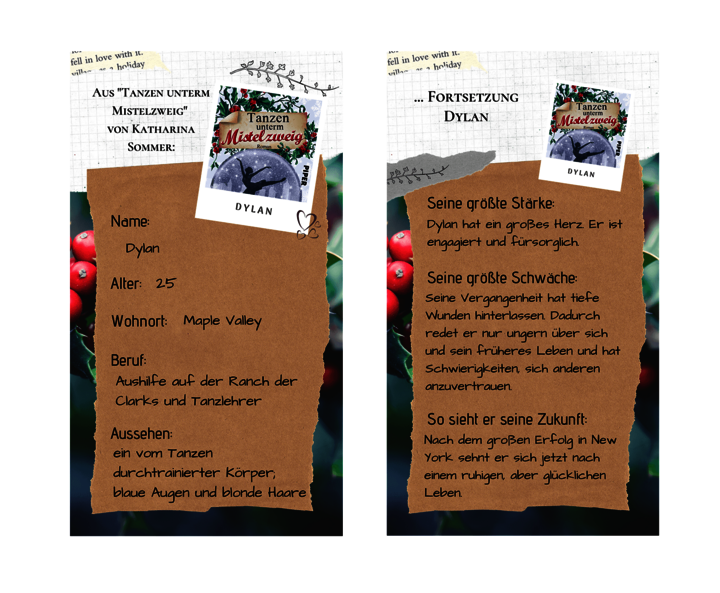 fell in love with it.
a holiday
Aus "Tanzen unterm
Mistelzweig"
von Katharina
Sommer:
Tanzen
unterm
Mistelzweig
Roman
PIPER
DYLAN
Name:
Dylan
Alter: 25
Wohnort: Maple Valley
Beruf:
Aushilfe auf der Ranch der
Clarks und Tanzlehrer
Aussehen:
ein vom Tanzen
durchtrainierter Körper,
blaue Augen und blonde Haare
fell in love with it.
a holiday
... Fortsetzung
Dylan
Tanzen
unterm
Mistelzweig
Roman
PIPER
DYLAN
Seine größte Stärke:
Dylan hat ein großes Herz. Er ist
engagiert und fürsorglich.
Seine größte Schwäche:
Seine Vergangenheit hat tiefe
Wunden hinterlassen. Dadurch
redet er nur ungern über sich
und sein früheres Leben und hat
Schwierigkeiten, sich anderen
anzuvertrauen.
So sieht er seine Zukunft:
Nach dem großen Erfolg in New
York sehnt er sich jetzt nach
einem ruhigen, aber glücklichen
Leben.